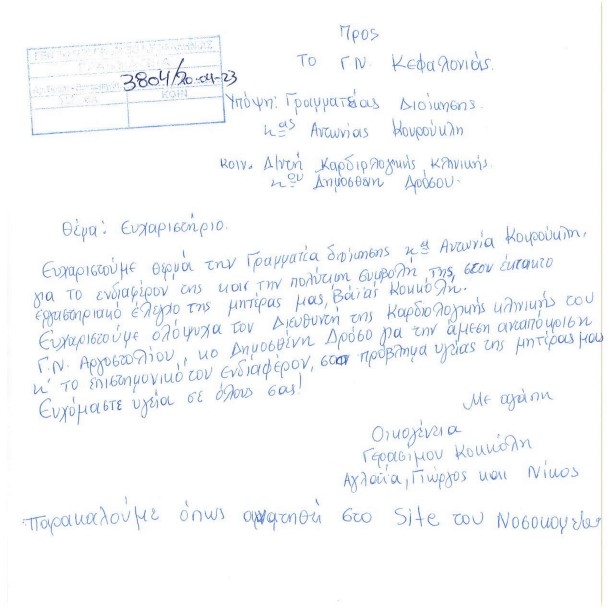 3804/20-04-23
ΚΟΙΝ
Προς
Το Γ.Ν. Κεφαλονιάς.
Υπόψη: Γραμματείας Διοίκησης.
κας Αντωνίας Κουρούκλη
κοιν. Δ/ντή Καρδιολογικής κλινικής.
κου Δημοσθένη Δρόσου.
Θέμα: Ευχαριστήριο.
Ευχαριστούμε θερμά την Γραμματέα διοίκησης κα Αντωνία Κουρούκλη,
για το ενδιαφέρον της και την πολύτιμη συμβολή της, στον έκτακτο
εργαστηριακό έλεγχο της μητέρας μας, Κοκκόλη.
Ευχαριστούμε ολόψυχα τον Διευθυντή της Καρδιολογικής κλινικής του
Γ.Ν. Αργοστολίου, κο Δημοσθένη Δρόσο για την άμεση ανταπόκριση
κ' το επιστημονικό του ενδιαφέρον, στο πρόβλημα υγείας της μητέρας μας
Ευχόμαστε υγεία σε όλους σας!
Με αγάπη
Οικογένεια
Γεράσιμου Κοκκόλη
Αγλαΐα, Γιώργος και Νίκος
Παρακαλούμε όπως αναρτηθεί στο Site του Νοσοκομείου